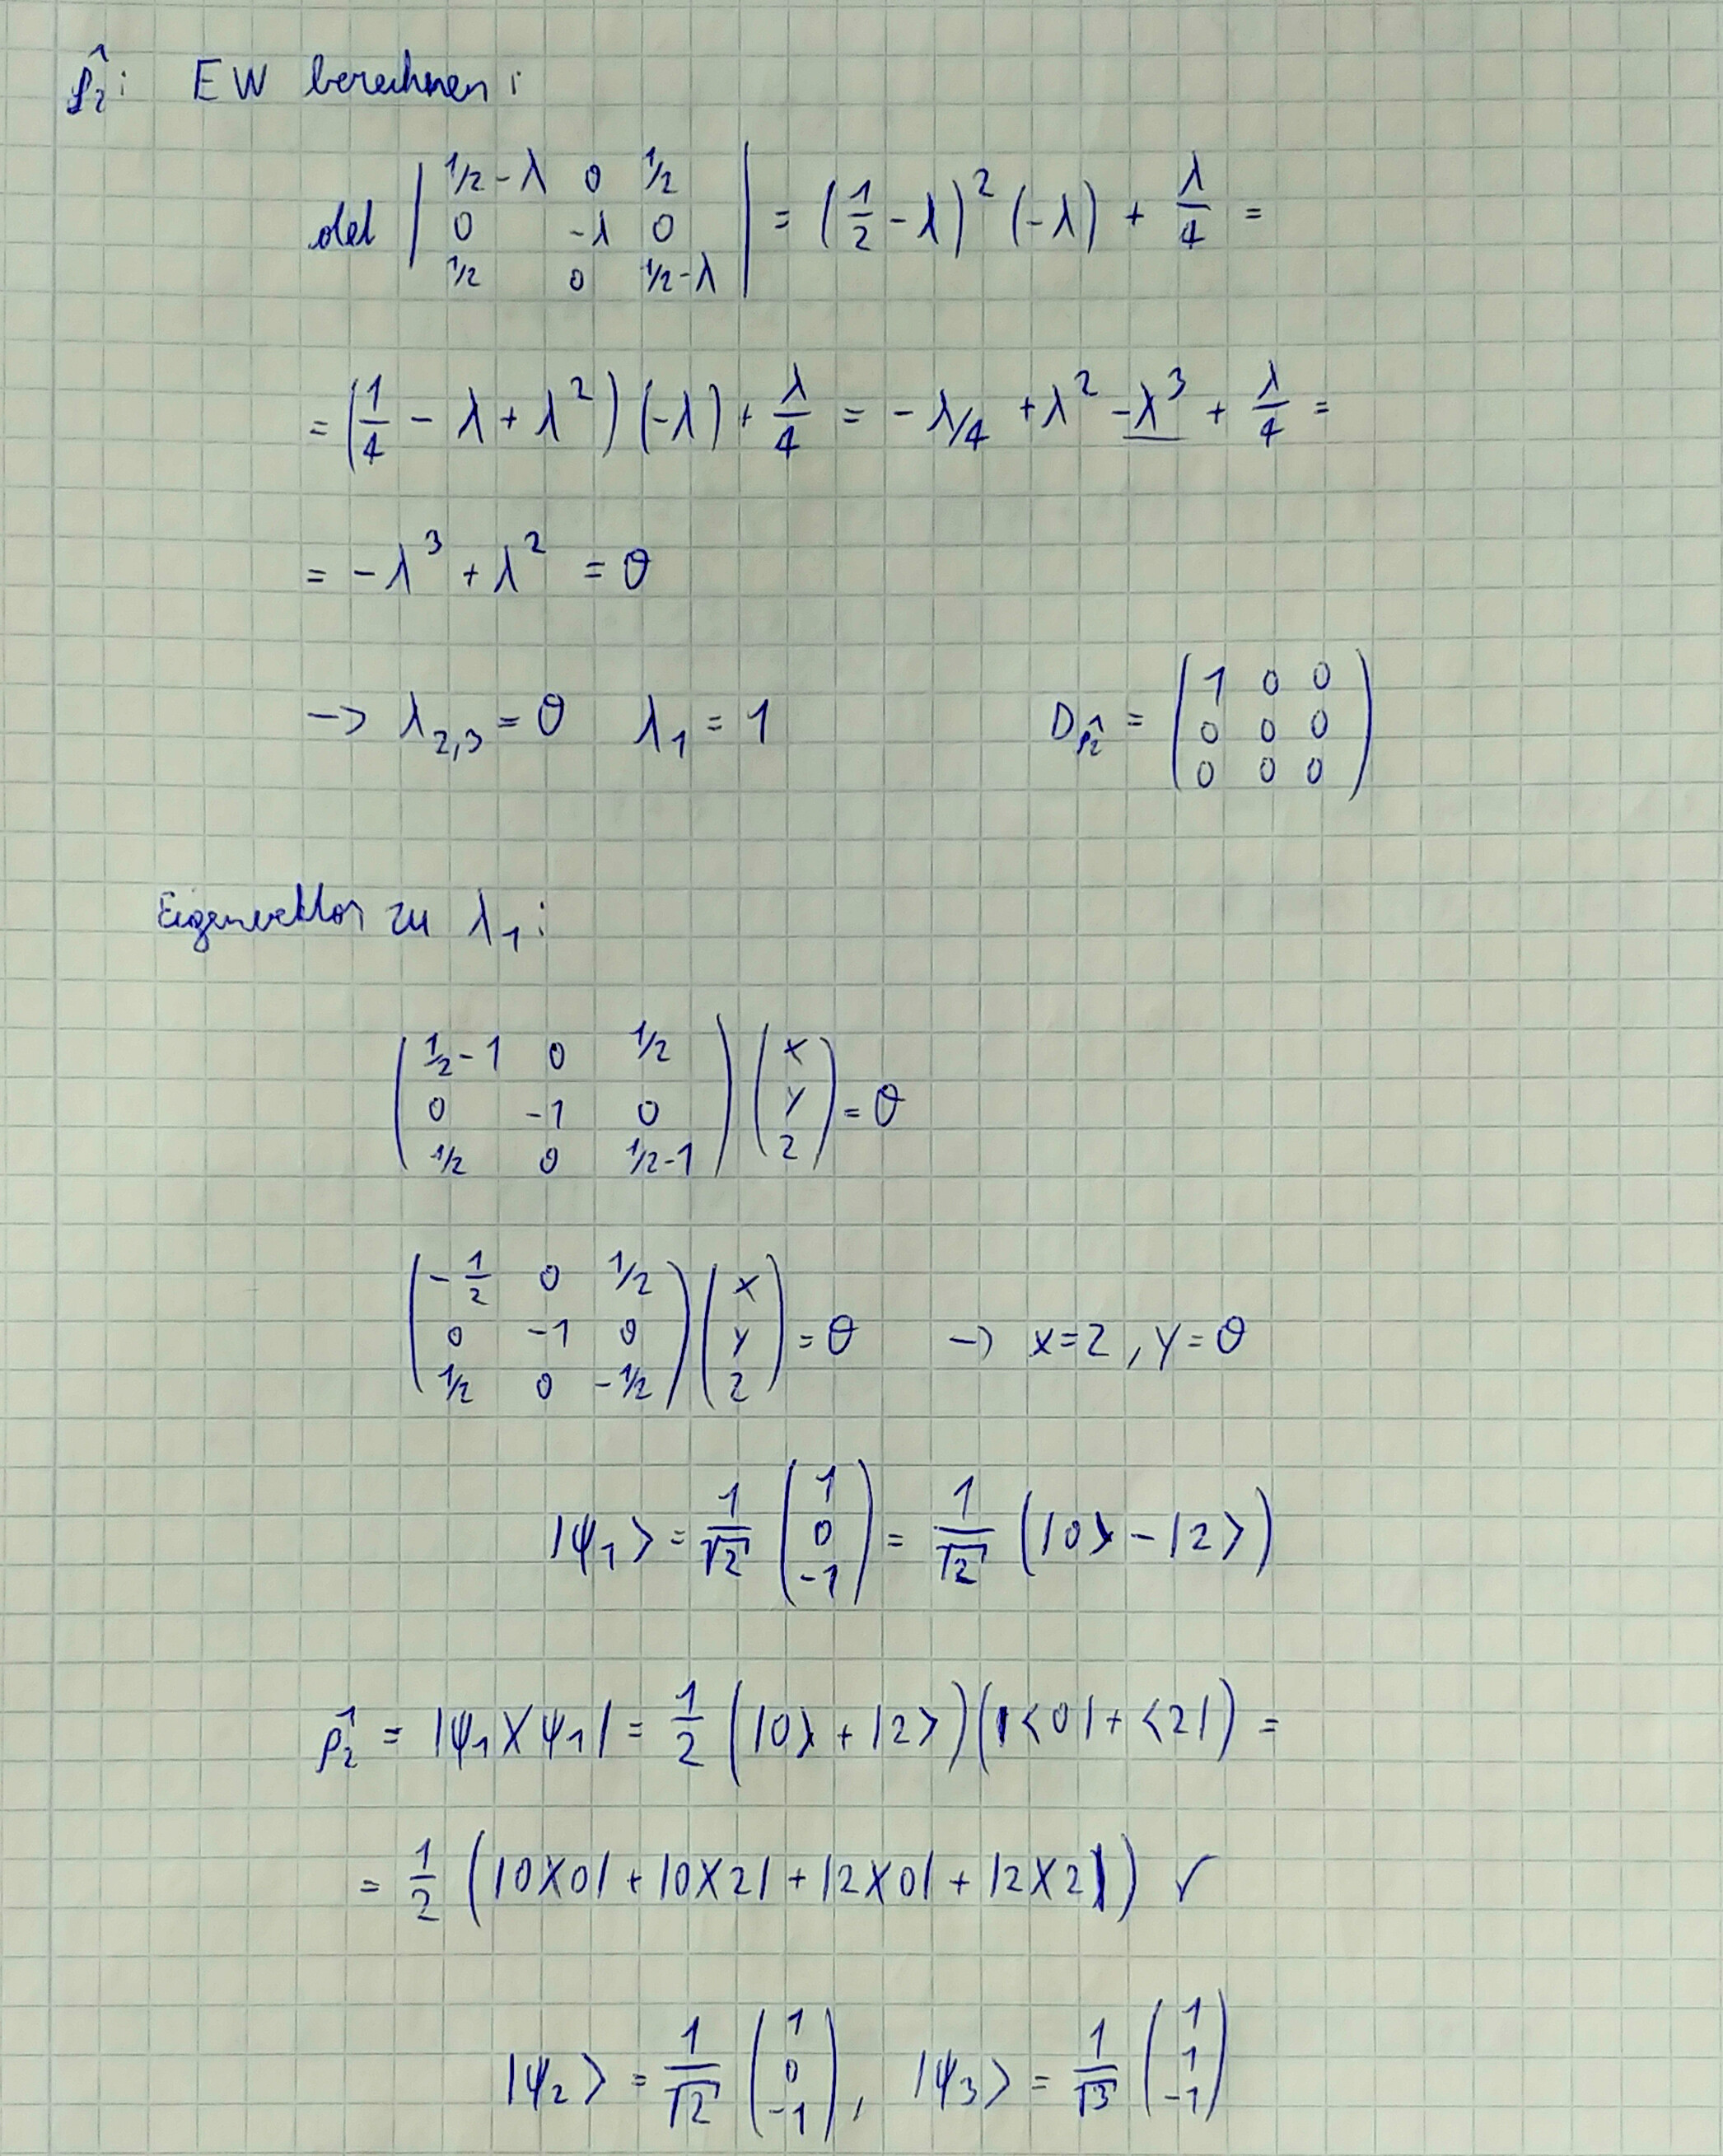 ρ̂₂: EW berechnen:
det | 1/2-λ 0 1/2 |
| 0 -λ 0 | = (1/2 - λ)² (-λ) + λ/4 =
| 1/2 0 1/2-λ |
= (1/4 - λ + λ²) (-λ) + λ/4 = - λ/4 + λ² - λ³ + λ/4 =
= -λ³ + λ² = 0
→ λ₂,₃ = 0 λ₁ = 1 D_ρ̂₂ = ( 1 0 0
0 0 0
0 0 0 )
Eigenvektor zu λ₁:
( 1/2-1 0 1/2 ) ( x )
( 0 -1 0 ) ( y ) = 0
( 1/2 0 1/2-1 ) ( z )
( -1/2 0 1/2 ) ( x )
( 0 -1 0 ) ( y ) = 0 → x=z, y=0
( 1/2 0 -1/2 ) ( z )
|ψ₁⟩ = 1/√2 ( 1 0 -1 ) = 1/√2 (|0⟩ - |2⟩)
ρ̂₂ = |ψ₁⟩⟨ψ₁| = 1/2 (|0⟩ + |2⟩)(⟨0| + ⟨2|) =
= 1/2 (|0⟩⟨0| + |0⟩⟨2| + |2⟩⟨0| + |2⟩⟨2|) ✓
|ψ₂⟩ = 1/√2 ( 1 0 -1 ), |ψ₃⟩ = 1/√3 ( 1 1 -1 )